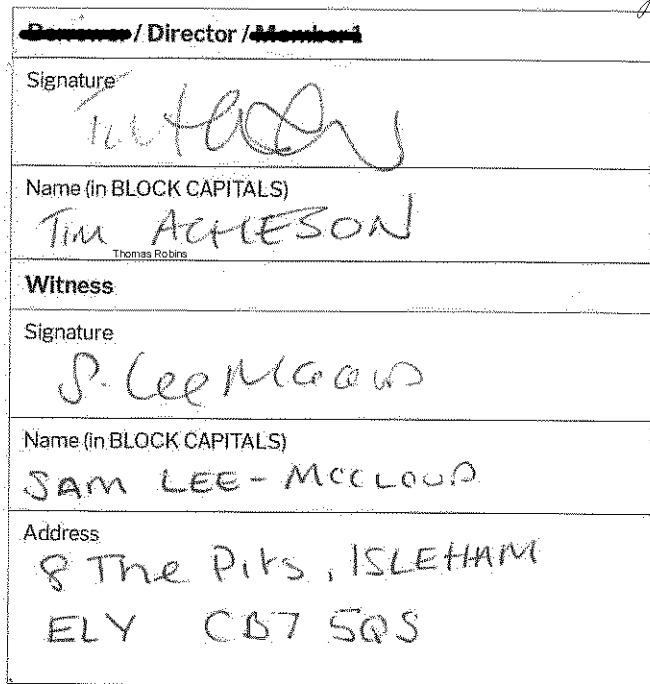 Borrower / Director / Member 1
Signature
Name (in BLOCK CAPITALS)
TIM ACHESON
Thomas Robins
Witness
Signature
S. Lee McCloud
Name (in BLOCK CAPITALS)
SAM LEE-MCCLOUD
Address
8 The Pits, ISLEHAM
ELY CB7 5QS